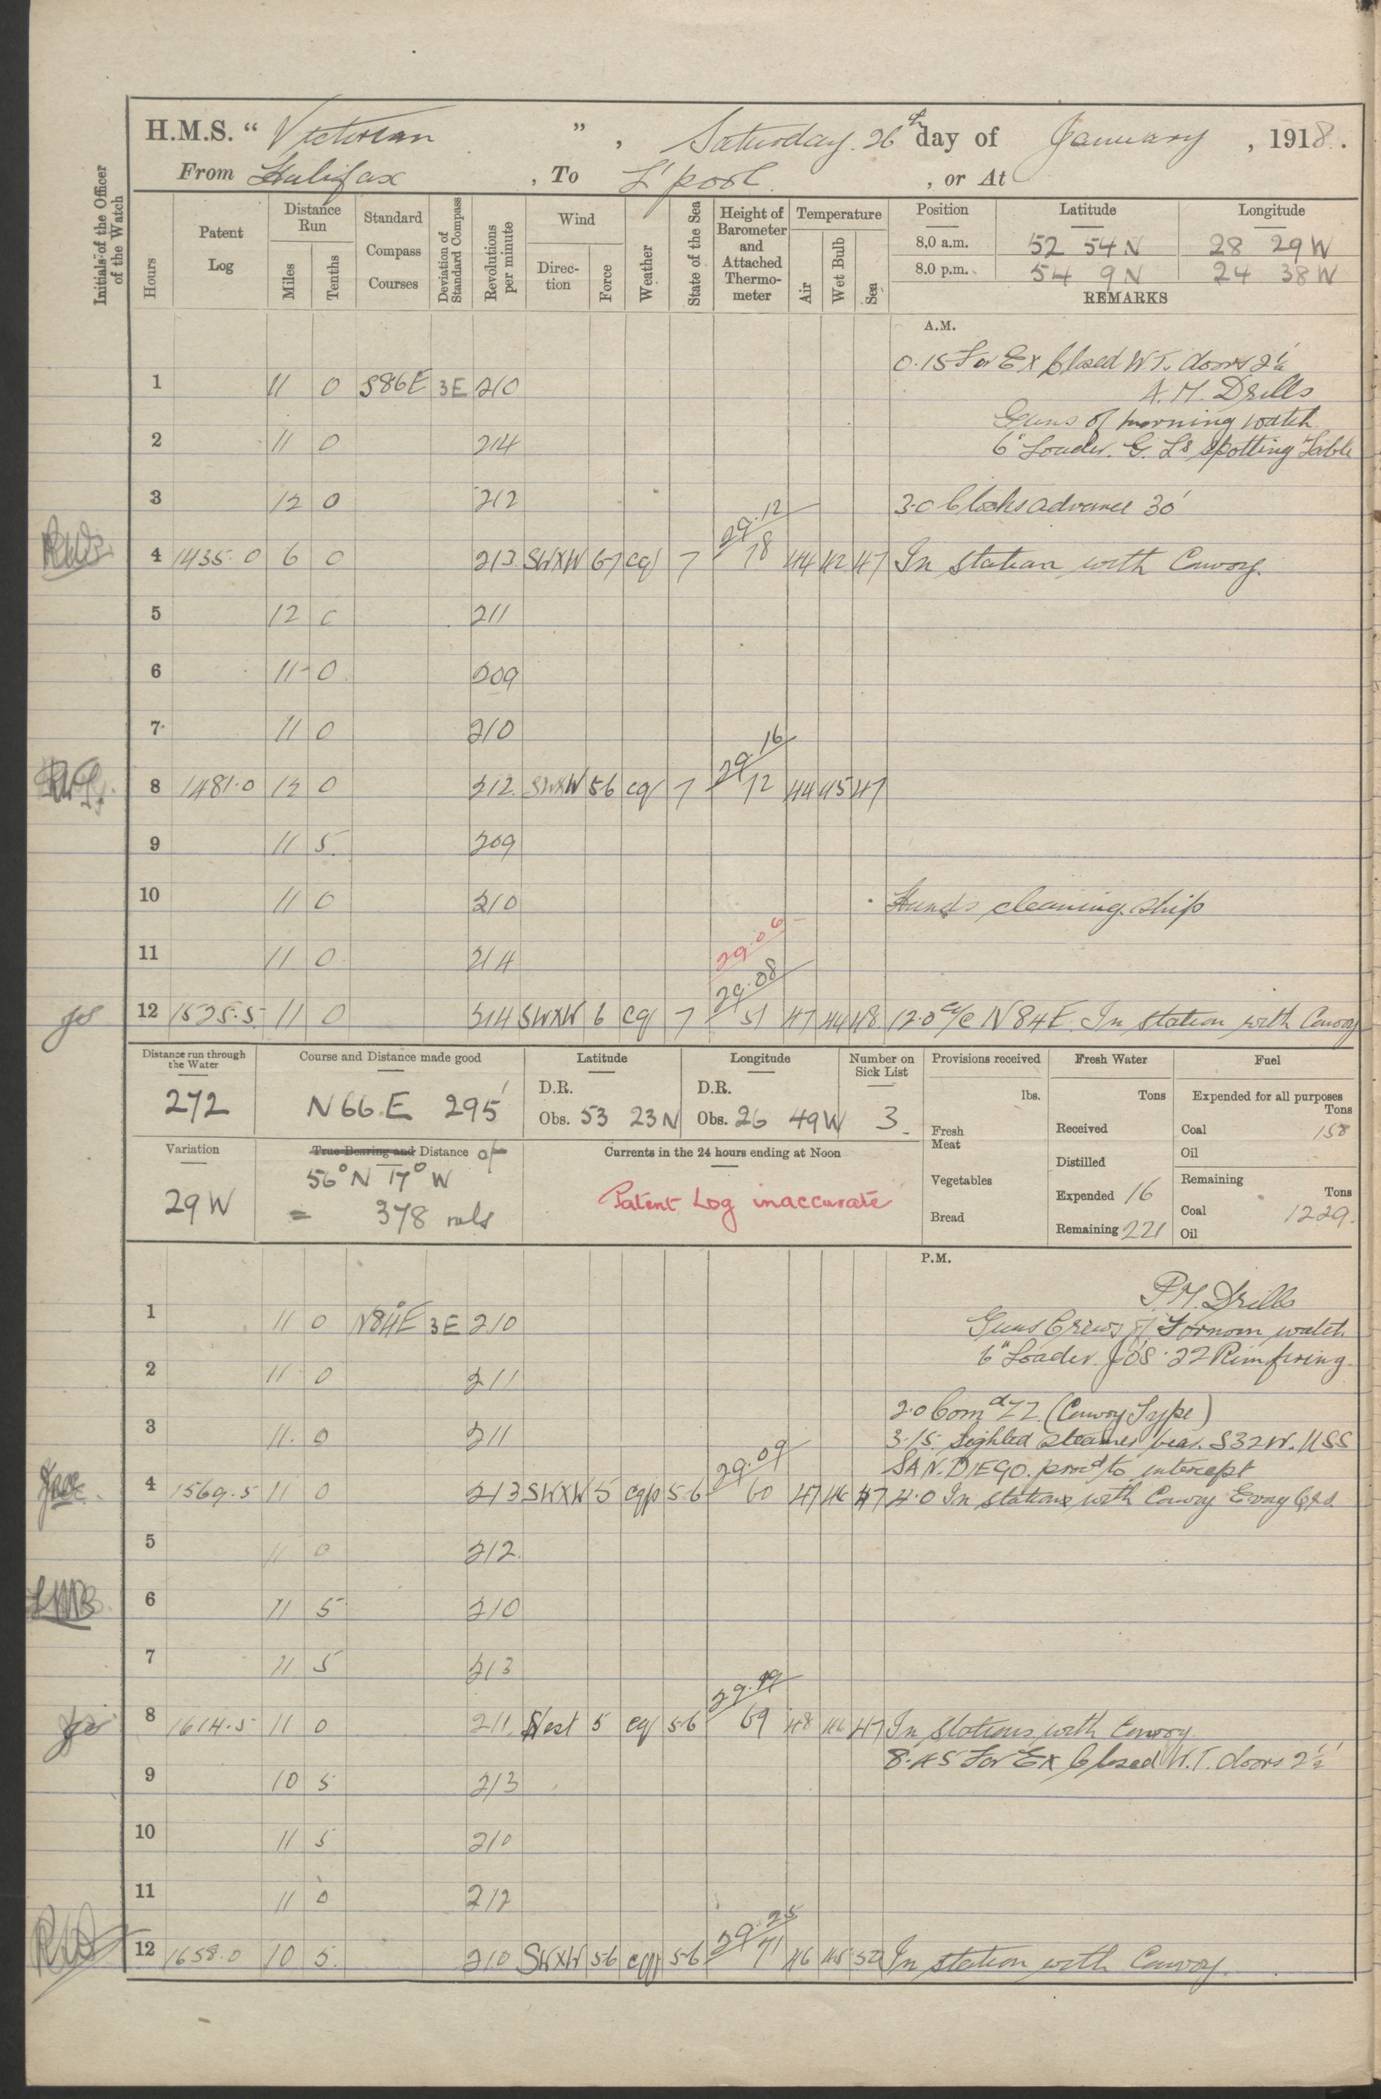 H.M.S. " Victorian " , Saturday 26th day of January , 1918 .
From Halifax , To L'pool , or At
Initials of the Officer of the Watch
Hours
Patent Log
Distance Run
Miles
Tenths
Standard Compass Courses
Deviation of Standard Compass
Revolutions per minute
Wind
Direction
Force
Weather
State of the Sea
Height of Barometer and Attached Thermometer
Temperature
Air
Wet Bulb
Sea
Position Latitude Longitude
8.0 a.m. 52 54 N 28 29 W
8.0 p.m. 54 9 N 24 38 W
REMARKS
A.M.
0.15 For Ex Closed W.T. doors 2½'
1 11 0 S86E 3E 210
A.M. Drills
Guns of morning watch
2 11 0 214
6" Loader. G. Ls Spotting Table
3 12 0 212 3.0 Clocks advance 30'
29.12
4 1435.0 6 0 213 SWXW 6-7 cq 7 78 44 42 47 In station with Convoy.
5 12 0 211
6 11 0 209
7 11 0 210
29.16
8 1481.0 12 0 212 SWXW 5-6 cq 7 72 44 45 47
9 11 5 209
10 11 0 210 Hands cleaning ship
29.06
11 11 0 214
29.08
12 1525.5 11 0 214 SWXW 6 cq 7 51 47 44 48 12.0 a/c N84E. In station with Convoy
Distance run through the Water
272
Course and Distance made good
N66.E 295'
Latitude
D.R.
Obs. 53 23 N
Longitude
D.R.
Obs. 26 49 W
Number on Sick List
3
Provisions received
lbs.
Fresh Meat
Vegetables
Bread
Fresh Water
Tons
Received
Distilled
Expended 16
Remaining 221
Fuel
Expended for all purposes
Tons
Coal 158
Oil
Remaining
Tons
Coal 1229.
Oil
Variation
29 W
True Bearing and Distance of
56°N 17°W
= 378 mls
Currents in the 24 hours ending at Noon
Patent Log inaccurate
P.M.
P.M. Drills
1 11 0 N84°E 3E 210
Guns Crews of Fornoon watch
6" Loader. JOS. 22 Rim firing
2 11 0 211
2.0 Comd ZZ (Convoy Type)
3 11 0 211
3.15 Sighted steamer bear. S32W. USS
SAN. DIEGO. procd to intercept
29.09
4 1569.5 11 0 213 SWXW 5 cqp 5-6 60 47 46 47 4.0 In station with Convoy
5 11 0 212
6 11 5 210
7 11 5 213
29.19
8 1614.5 11 0 211 West 5 cq 5-6 69 48 46 47 In station with Convoy
8.45 For Ex Closed W.T. doors 2½'
9 10 5 213
10 11 5 210
11 11 0 212
29.25
12 1658.0 10 5 210 SWXW 5-6 cqp 5-6 71 46 45 50 In station with Convoy.